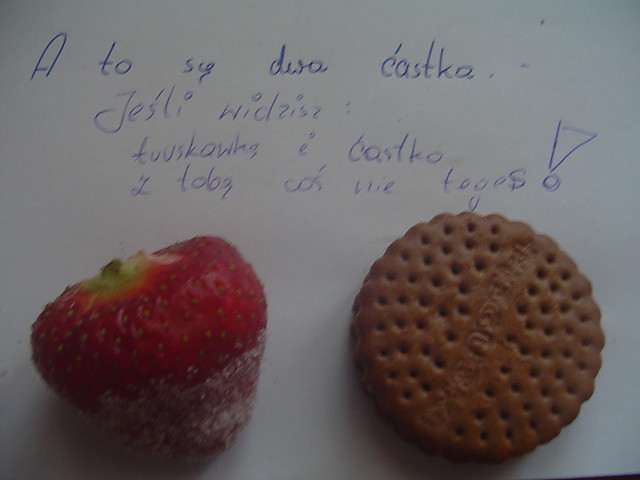 A to są dwa ćastka.
Jeśli widzisz:
tuuskawkę i ćastko
z tobą coś nie teges!